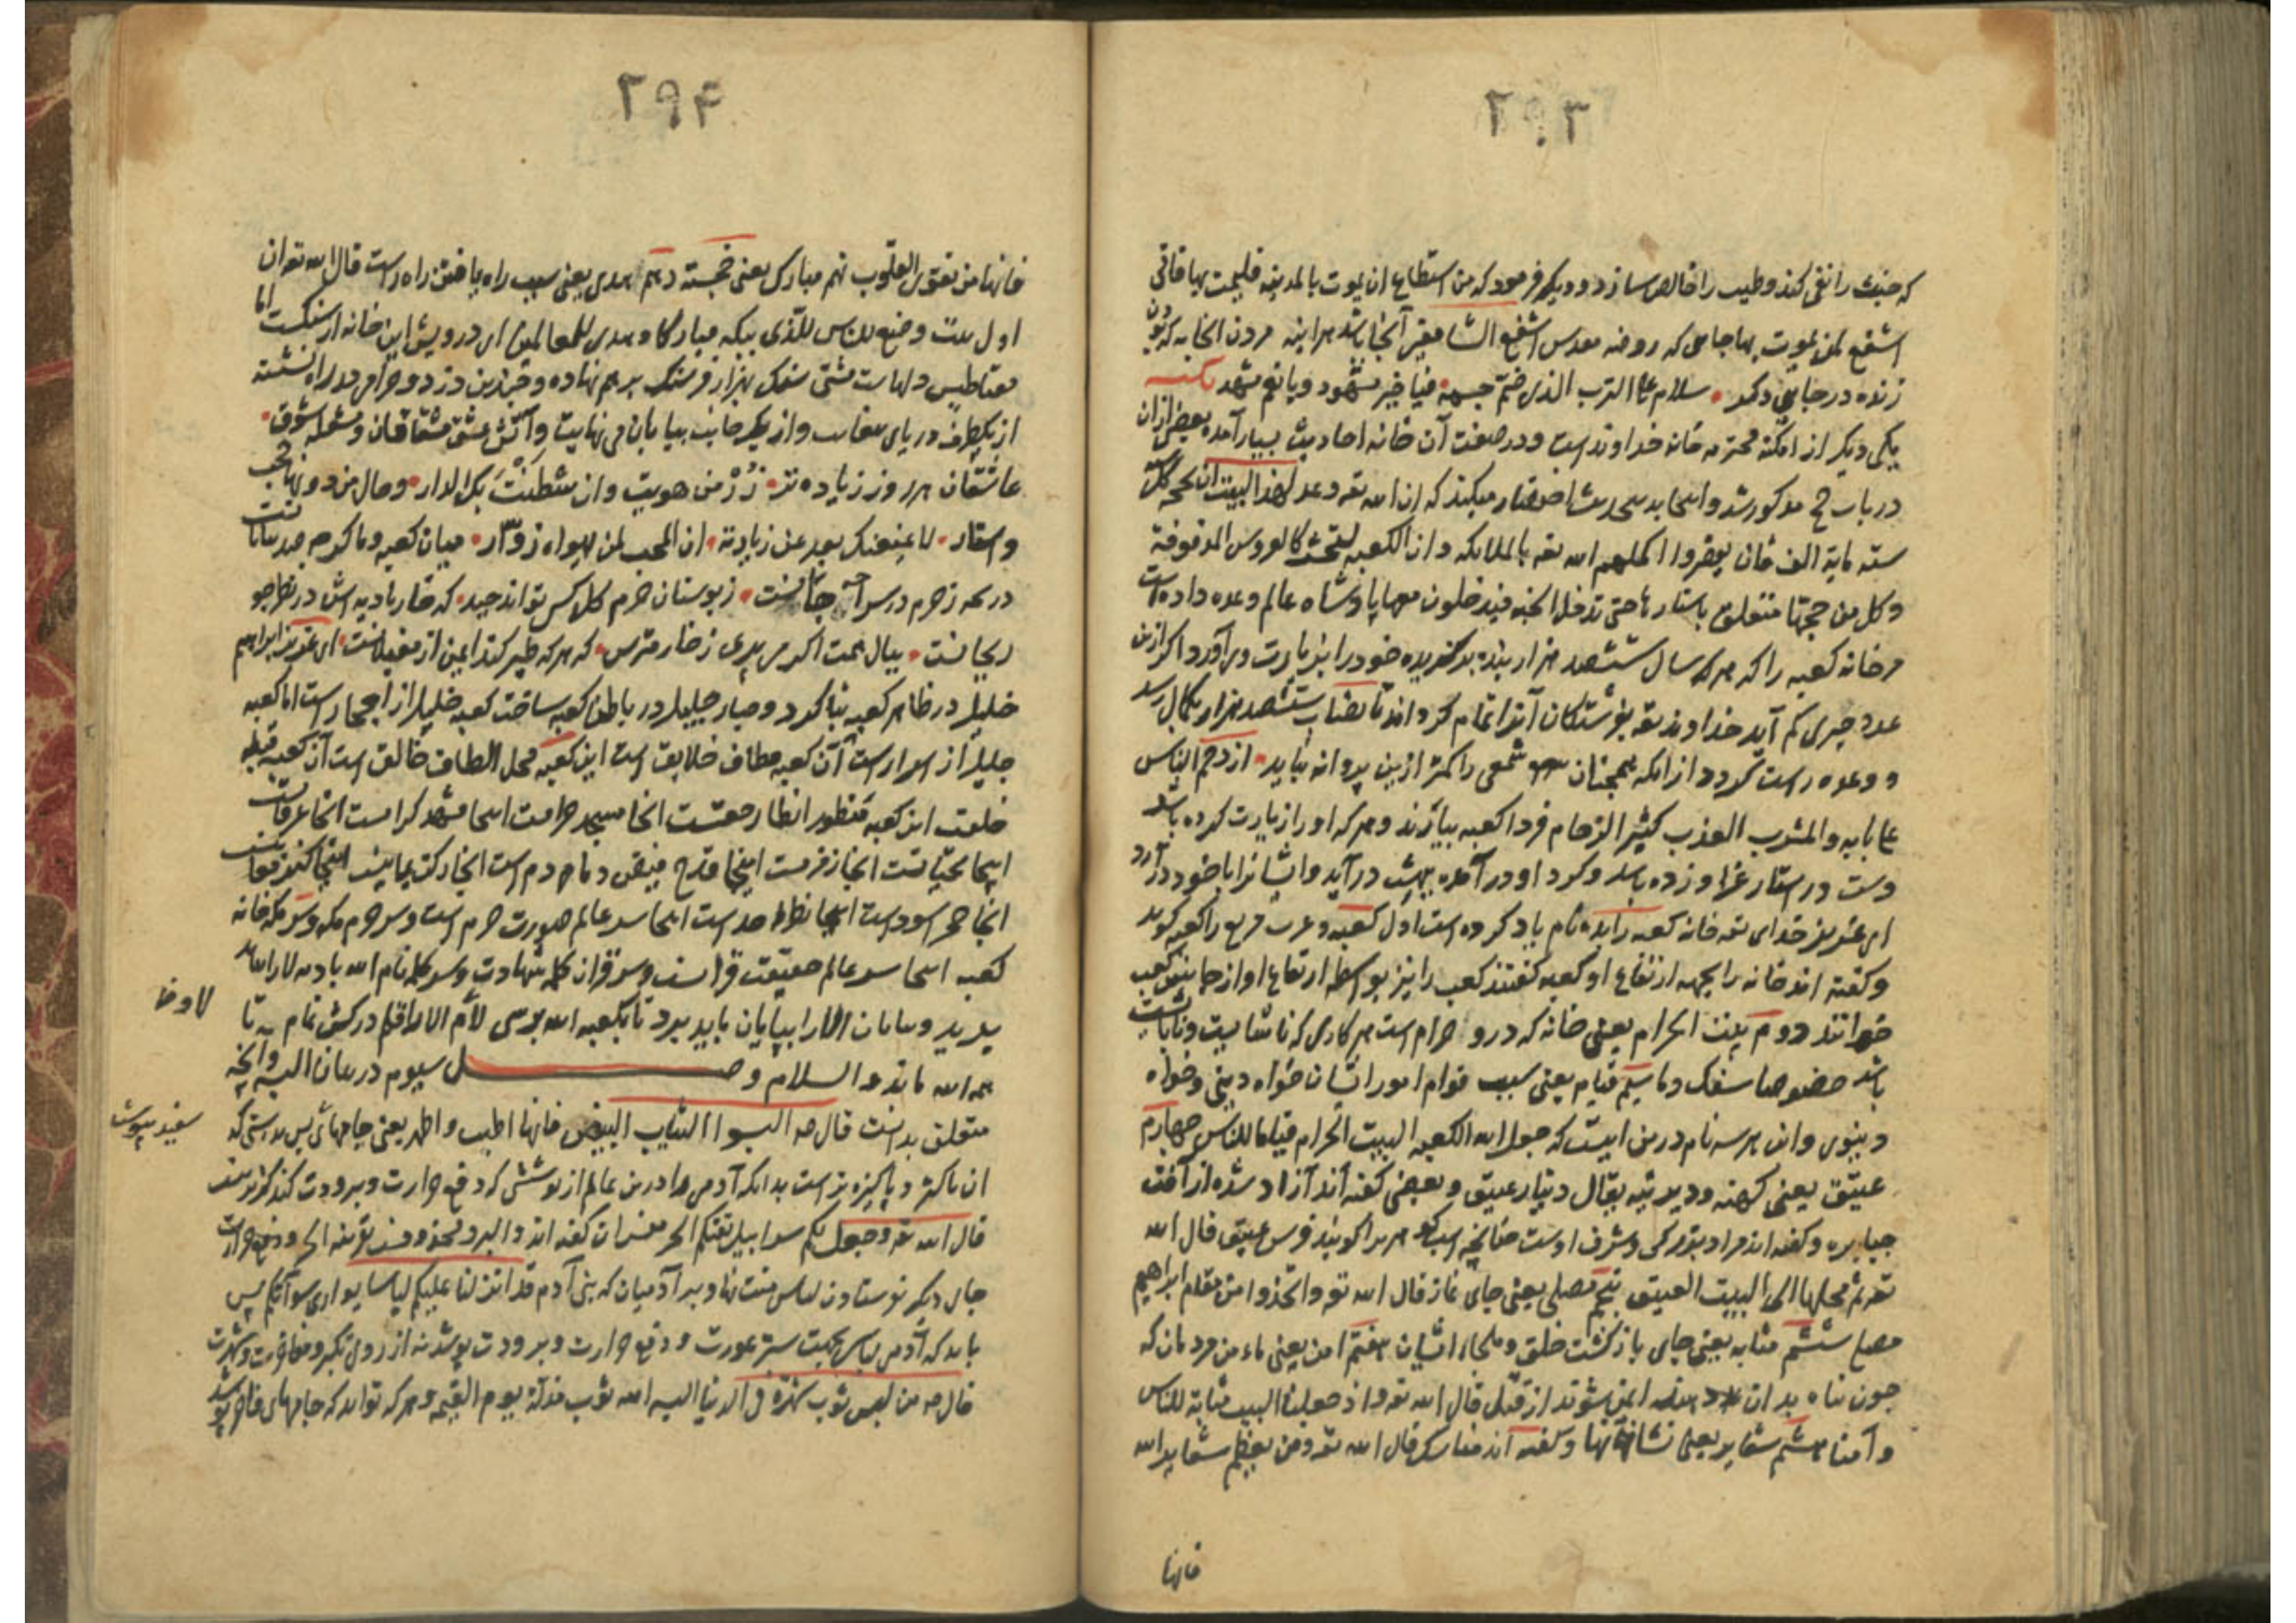 ۲۹۳
که خبث را نفی کند و طیب را خالص سازد و دیگر فرمود که من استطاع ان یموت بالمدینه فلیمت بها فانی
اشفع لمن یموت بها جایی که روضه مقدس اشفع الشافعین آنجا باشد هر آینه مردن آنجا به که بودن
زنده در جایی دگر سلام علی الترب الذی ضم جسمه فیا خیر مشهود و یا نعم مشهد
یکی دیگر از امکنه محترمه خانه خداوند است و در صفت آن خانه احادیث بسیار آمده بعضی ازان
در باب حج مذکور شد و اینجا بحدیث اختصار میکند که ان الله تعه وعد لهذا البیت ان یحجه کل سنه
ستة مایة الف فان نقصروا اکملهم الله تعه بالملائکه و ان الکعبه لتحشر کالعروس المزفوفة
و کل من حجها متعلق باستارها حتی تدخل الجنه فیدخلون معها پادشاه عالم وعده داده است
مر خانه کعبه را که هر سال ششصد هزار بنده برگزیده خود را بزیارت وی آورد اگر ازین
عدد چیزی کم آید خداوند تعه بفرشتگان آنرا تمام گرداند تا نصاب ششصد هزار بکمال رسد
و وعده راست گردد از آنکه همچنان شمعی را کمتر ازین پروانه نباید ازدحم الناس
علی بابه و المشرب العذب کثیر الزحام فردا کعبه بیارند و هر که او را زیارت کرده باشد
دست در استار عزا و زده باشد و گرد او در آمده بهشت در آید و ایشانرا با خود در آرد
ای عزیز خدای تعه خانه کعبه را بده نام یاد کرده است اول کعبه و عرب مربع را کعبه گوید
و گفته اند خانه را بجهه ارتفاع او کعبه گفتند کعب را نیز بواسطه ارتفاع او از جانبین کعب
خوانند دوم بیت الحرام یعنی خانه که درو حرام است هر کاری که ناشایست و نابایست
باشد خصوصا سفک دما سیم قیام یعنی سبب قوام امور ایشان خواه دینی و خواه
دنیوی و این هر سه نام درین ایت که جعل الله الکعبه البیت الحرام قیاما للناس چهارم
عتیق یعنی کهنه و دیرینه یقال دینار عتیق و بعضی گفته اند آزاد شده از آفت
جبابره و گفته اند مراد بزرگی و شرف اوست چنانچه اسب را گویند فرس عتیق قال الله
تعه ثم محلها الی البیت العتیق پنجم مصلی یعنی جای نماز قال الله تعه و اتخذوا من مقام ابراهیم
مصلی ششم مثابه یعنی جای بازگشت خلق و ملجاء ایشان هفتم امن یعنی مأمن مردمان که
چون پناه بدان ایمن شوند از قتل قال الله تعه و اذ جعلنا البیت مثابة للناس
و آمنا هشتم شعایر یعنی نشانها و گفته اند مناسک قال الله تعه و من یعظم شعایر الله
فانها
۲۹۴
فانها من تقوی القلوب نهم مبارک یعنی خجسته دهم هدی یعنی سبب راه یافتن راه راست قال الله تعه ان
اول بیت وضع للناس للذی ببکه مبارکا و هدی للعالمین ای درویش این خانه از سنگست اما
مقناطیس دلهاست مشتی سنگ بهزار فرسنگ بر هم نهاده و چندین دزد و حرامی در راه نشسته
از یکطرف دریای و از یک جانب بیابان بی نهایت و آتش عشق مشتاقان و شعله شوق
عاشقان هر روز زیاده تر زر من هویت و ان شطت بک الدار و حال من دونه حجب
و استار لا یمنعنک بعد عن زیارته ان المحب لمن یهواه زوار میان کعبه و ما گرچه صد بیابانست
دریچه ز حرم در سراچه جانست ز بوستان حرم گل کس تواند چید که خار بادیه اش در نظر چو
ریحانست ببال همت اگر می پری ز خار مترس که هر که طیر کند ایمن از مغیلانست ای عزیز ابراهیم
خلیل در ظاهر کعبه بنا کرد و جبار جلیل در باطن کعبه ساخت کعبه خلیل از احجار است اما کعبه
جلیل از اسرار است آن کعبه مطاف خلایق است این کعبه محل الطاف خالق است آن کعبه قبله
خلقت این کعبه منظور انظار حقست آنجا مسجد حرامست اینجا مشهد کرامست آنجا عرفات
اینجا تحیاتست آنجا زمزمست اینجا قدح فیض دمادم است آنجا رکن یمانیست اینجا کنوز معانیست
آنجا حجر اسود است اینجا است اینجا سر عالم صورت حرم است و سر حرم مکه و سر مکه خانه
کعبه اینجا سر عالم حقیقت قرانست و سر قران کلمه شهادت و سر کلمه نام الله
بدید و بیابان الا را بپایان باید برد تا بکعبه الله برسی لام الا را قلم درکش تمام به تا
همه الله ماند و السلام وصل سیوم در بیان البسه و آنچه
متعلق بدانست قال صه البسوا الثیاب البیض فانها اطیب و اطهر یعنی جامهای بپوشید سفید بدرستی که
آن پاکتر و پاکیزه تر است بدانکه آدمی را درین عالم از پوشش که دفع حرارت و برودت کند گزیر نیست
قال الله تعه و جعل لکم سرابیل تقیکم الحر مفسران گفته اند و البرد
جای دیگر فرستادن لباس منت نهاد بر آدمیان که یا بنی آدم قد انزلنا علیکم لباسا یواری سوآتکم پس
باید که آدمی لباس بجهت ستر عورت و دفع حرارت و برودت پوشد نه از روی تکبر و مفاخرت و شهرت
قال صه من لبس ثوب شهرة فی الدنیا البسه الله ثوب مذلة یوم القیمه و هر که تواند که جامهای فاخر پوشد
سفید بپوشید